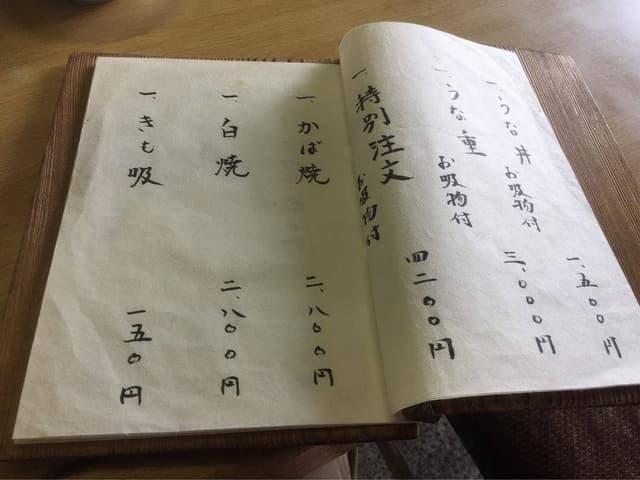 一、うな丼 お吸物付 一、五〇〇円
一、うな重 お吸物付 三、〇〇〇円
一、特別注文 お吸物付 四二〇〇円
一、かば焼 二、八〇〇円
一、白焼 二、八〇〇円
一、きも吸 一五〇円